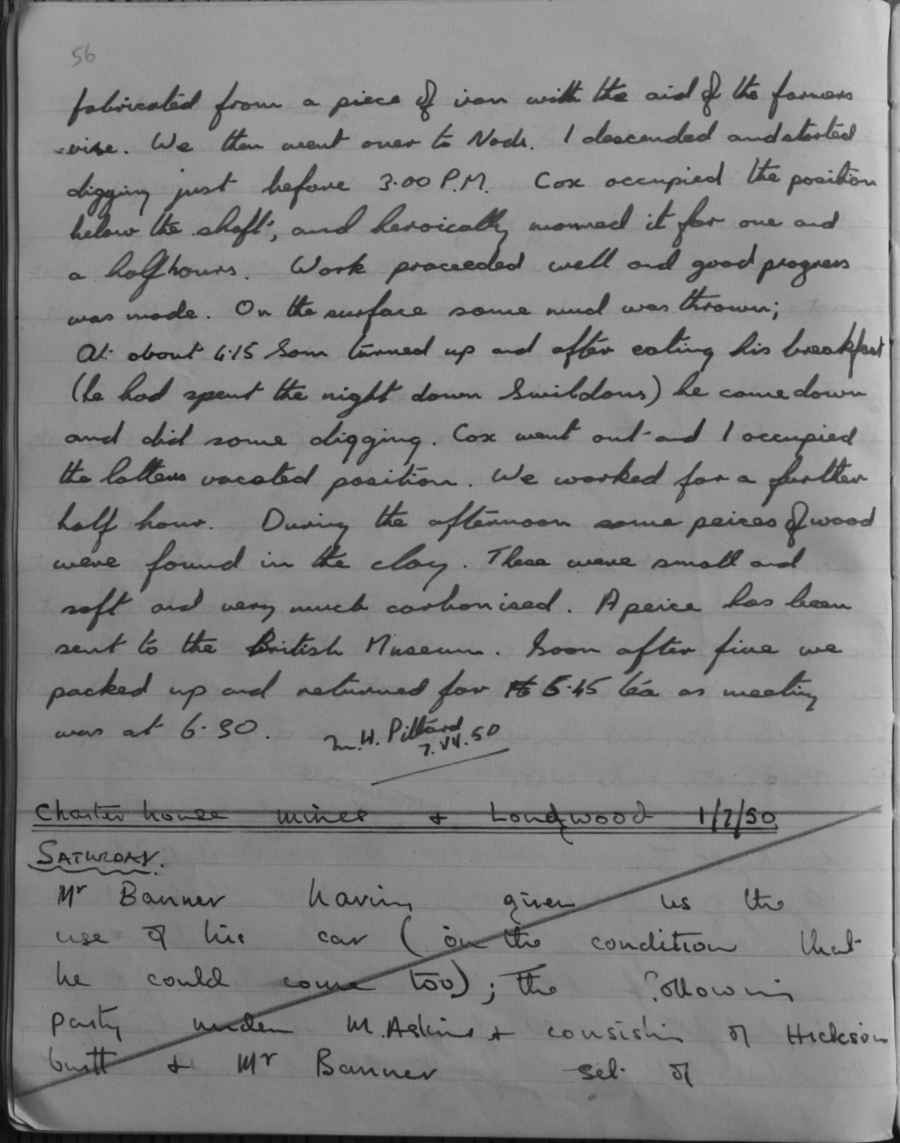 56
fabricated from a piece of iron with the aid of the farmers
vise. We then went over to Nods. I descended and started
digging just before 3.00 P.M. Cox occupied the position
below the shaft, and heroically manned it for one and
a half hours. Work proceeded well and good progress
was made. On the surface some mud was thrown;
At about 4.15 Sam turned up and after eating his breakfast
(he had spent the night down Swildons) he came down
and did some digging. Cox went out and I occupied
the latters vacated position. We worked for a further
half hour. During the afternoon some peices of wood
were found in the clay. These were small and
soft and very much carbonised. A peice has been
sent to the British Museum. Soon after five we
packed up and returned for 5.45 tea as meeting
was at 6.30. M.H. Pittard
7.VII.50
Charterhouse mines & Longwood 1/7/50
SATURDAY.
Mr Banner having given us the
use of his car (on the condition that
he could come too); the following
party under M. Askins & consistin of Hickson
& Mr Banner set of